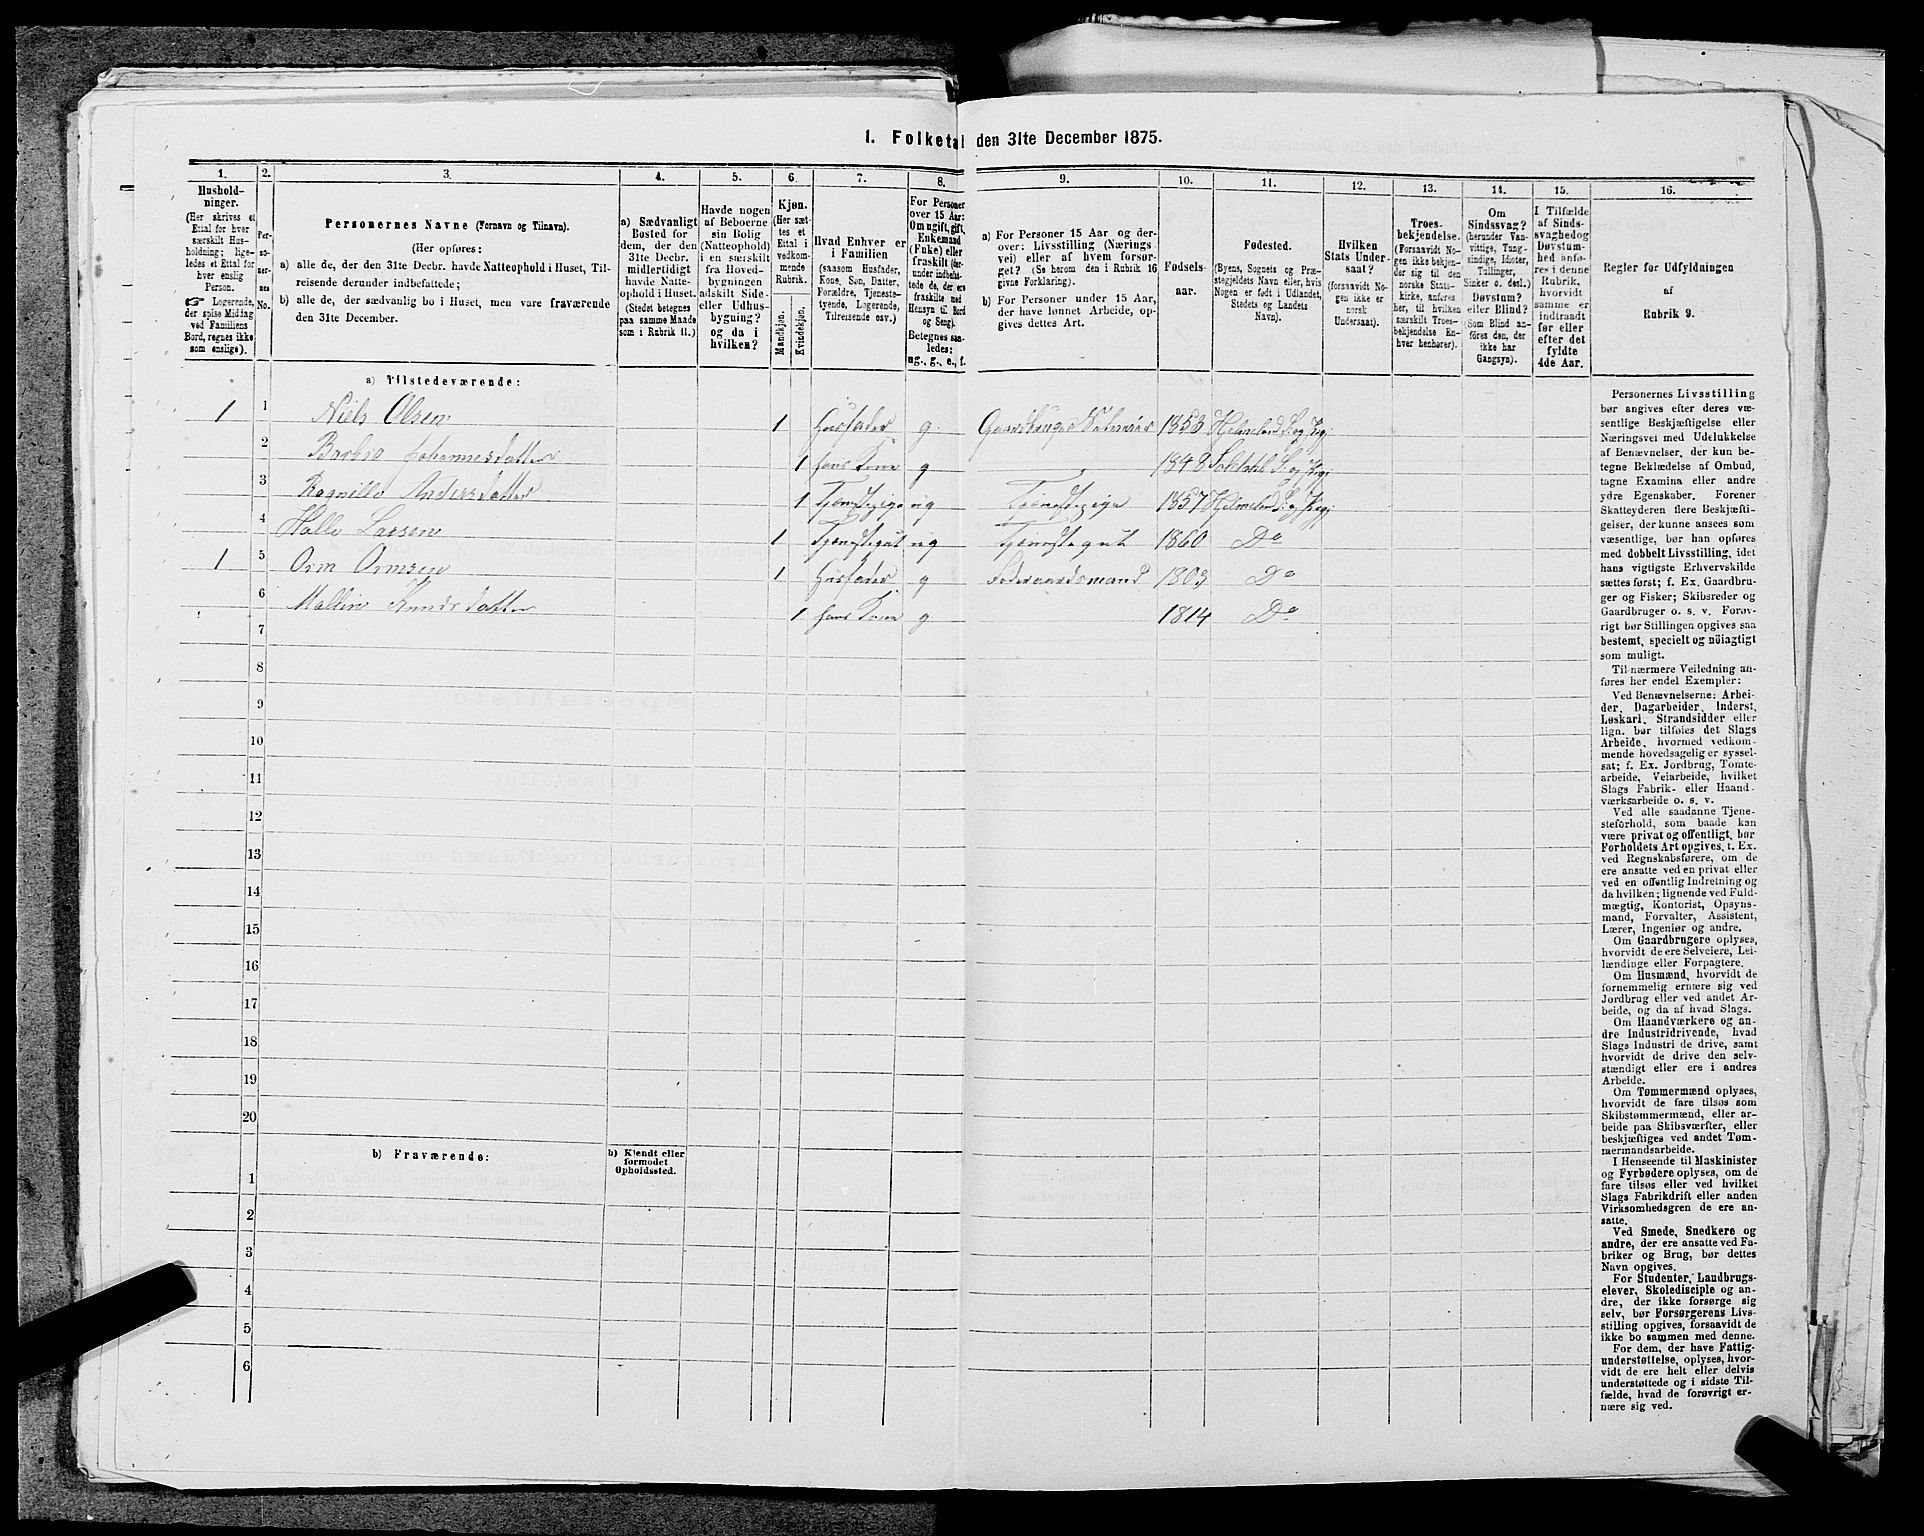 1. Folketal den 31te December 1875.
1.
Hushold-
ninger.
(Her skrives et
Ettal for hver
særskilt Hus-
holdning; lige-
ledes et Ettal for
hver enslig
Person.
☞ Logerende,
der spise Middag
ved Familiens
Bord, regnes ikke
som enslige).
2.
Per-
so-
ner-
nes
No.
3.
Personernes Navne (Fornavn og Tilnavn).
(Her opføres:
a) alle de, der den 31te Decbr. havde Natteophold i Huset, Til-
reisende derunder indbefattede;
b) alle de, der sædvanlig bo i Huset, men vare fraværende
den 31te December.
4.
a) Sædvanligt
Bosted for
dem, der den
31te Decbr.
midlertidigt
havde Natte-
ophold i Huset.
(Stedet betegnes
paa samme Maade
som i Rubrik 11.)
5.
Havde nogen
af Beboerne
sin Bolig
(Natteophold)
i en særskilt
fra Hoved-
bygningen
adskilt Side-
eller Udhus-
bygning?
og da i
hvilken?
6.
Kjøn.
(Her sæt-
tes et
Ettal i
vedkom-
mende
Rubrik.
Mandkjøn.
Kvindekjøn.
7.
Hvad Enhver er
i Familien
(saasom Husfader,
Kone, Søn, Datter,
Forældre, Tjeneste-
tyende, Logerende,
Tilreisende osv.)
8.
For Personer
over 15 Aar:
Om ugift, gift,
Enkemand
(Enke) eller
fraskilt (der-
under indbefat-
tede de, der ere
fraskilte med
Hensyn til Bord
og Seng).
Betegnes saa-
ledes:
ug., g., e., f.
9.
a) For Personer 15 Aar og der-
over: Livsstilling (Nærings-
vei) eller af hvem forsør-
get? (Se herom den i Rubrik 16
givne Forklaring).
b) For Personer under 15 Aar,
der have lønnet Arbeide, op-
gives dettes Art.
10.
Fødsels-
aar.
11.
Fødested.
(Byens, Sognets og Præ-
stegjeldets Navn, eller hvis
Nogen er født i Udlandet,
Stedets og Landets
Navn).
12.
Hvilken
Stats Under-
saat?
(forsaavidt No-
gen ikke er
norsk
Undersaat).
13.
Troes-
bekjendelse.
(Forsaavidt No-
gen ikke bekjen-
der sig til den
norske Stats-
kirke, anføres
her, til hvilken
særskilt Troes-
bekjendelse En-
hver henhører).
14.
Om
Sindssvag?
(herunder Van-
vittige, Tung-
sindige, Idioter,
Tullinger,
Sinker o. desl.)
Døvstum?
eller Blind?
(Som Blind an-
føres den, der
ikke har
Gangsyn).
15.
I Tilfælde
af Sinds-
svaghed og
Døvstum-
hed anfø-
res i denne
Rubrik,
hvorvidt
samme er
indtraadt
før eller
efter det
fyldte
4de Aar.
16.
Regler for Udfyldningen
af
Rubrik 9.
a) Tilstedeværende:
1 1 Niels Olsen 1 Husfader g. Gaardbruger 1853
2 Johannesdatter 1 hans Kone g 1848
3 Andersdatter 1 ug 1857
4 Halle Larsen 1 Tjenestegut ug Tjenestegut 1860 Do
1 5 Orm Ormsen 1 Husfader g Føderaadsmand 1803 Do
6 Knudsdatter 1 hans Kone g 1814 Do
7
8
9
10
11
12
13
14
15
16
17
18
19
20
b) Fraværende:
b) Kjendt eller
formodet
Opholdssted.
1
2
3
4
5
6
Personernes Livsstilling
bør angives efter deres væ-
sentlige Beskjæftigelse eller
Næringsvei med Udelukkelse
af Benævnelser, der kun be-
tegne Beklædelse af Ombud,
tagne Examina eller andre
ydre Egenskaber. Forener
Skatteyderen flere Beskjæfti-
gelser, der kunne ansees som
væsentlige, bør han opføres
med dobbelt Livsstilling, idet
hans vigtigste Erhvervskilde
sættes først; f. Ex. Gaardbru-
ger og Fisker; Skibsreder og
Gaardbruger o. s. v. Forøv-
rigt bør Stillingen opgives saa
bestemt, specielt og nöiagtigt
som muligt.
Til nærmere Veiledning an-
føres her endel Exempler:
Ved Benævnelserne: Arbei-
der, Dagarbeider, Inderst,
Løskarl, Strandsidder eller
lign. bør tilføies det Slags
Arbeide, hvormed vedkom-
mende hovedsagelig er syssel-
sat; f. Ex. Jordbrug, Tomte-
arbeide, Veiarbeide, hvilket
Slags Fabrik- eller Haand-
værksarbeide o. s. v.
Ved alle saadanne Tjene-
steforhold, som baade kan
være privat og offentligt, bør
Forholdets Art opgives, t. Ex.
ved Regnskabsførere, om de
ere ansatte ved en privat eller
ved en offentlig Indretning og
da hvilken; lignende ved Fuld-
mægtig, Kontorist, Opsyns-
mand, Forvalter, Assistent,
Lærer, Ingeniør og andre.
Om Gaardbrugere oplyses,
hvorvidt de ere Selveiere, Lei-
lændinge eller Forpagtere.
Om Husmænd, hvorvidt de
fornemmelig ernære sig ved
Jordbrug eller ved andet Ar-
beide, og da af hvad Slags.
Om Haandværkere og an-
dre Industridrivende, hvad
Slags Industri de drive, samt
hvorvidt de drive den selv-
stændigt eller ere i andres
Arbeide.
Om Tømmermænd oplyses,
hvorvidt de fare tilsøs som
Skibstømmermænd, eller ar-
beide paa Skibsværfter, eller
beskjæftiges ved andet Tøm-
mermandsarbeide.
I Henseende til Maskinister
og Fyrbødere oplyses, om de
fare tilsøs eller ved hvilket
Slags Fabrikdrift eller anden
Virksomhedsgren de ere an-
satte.
Ved Smede, Snedkere og
andre, der ere ansatte ved Fa-
briker og Brug, bør dettes
Navn opgives.
For Studenter, Landbrugs-
elever, Skoledisciple og an-
dre, der ikke forsørge sig
selv, bør Forsørgerens Livs-
stilling opgives, forsaavidt de
ikke bo sammen med denne.
For dem, der have Fattig-
understøttelse, oplyses, hvor-
vidt de ere helt eller delvis
understøttede og i sidste Til-
fælde, hvad de forøvrigt er-
nære sig ved.